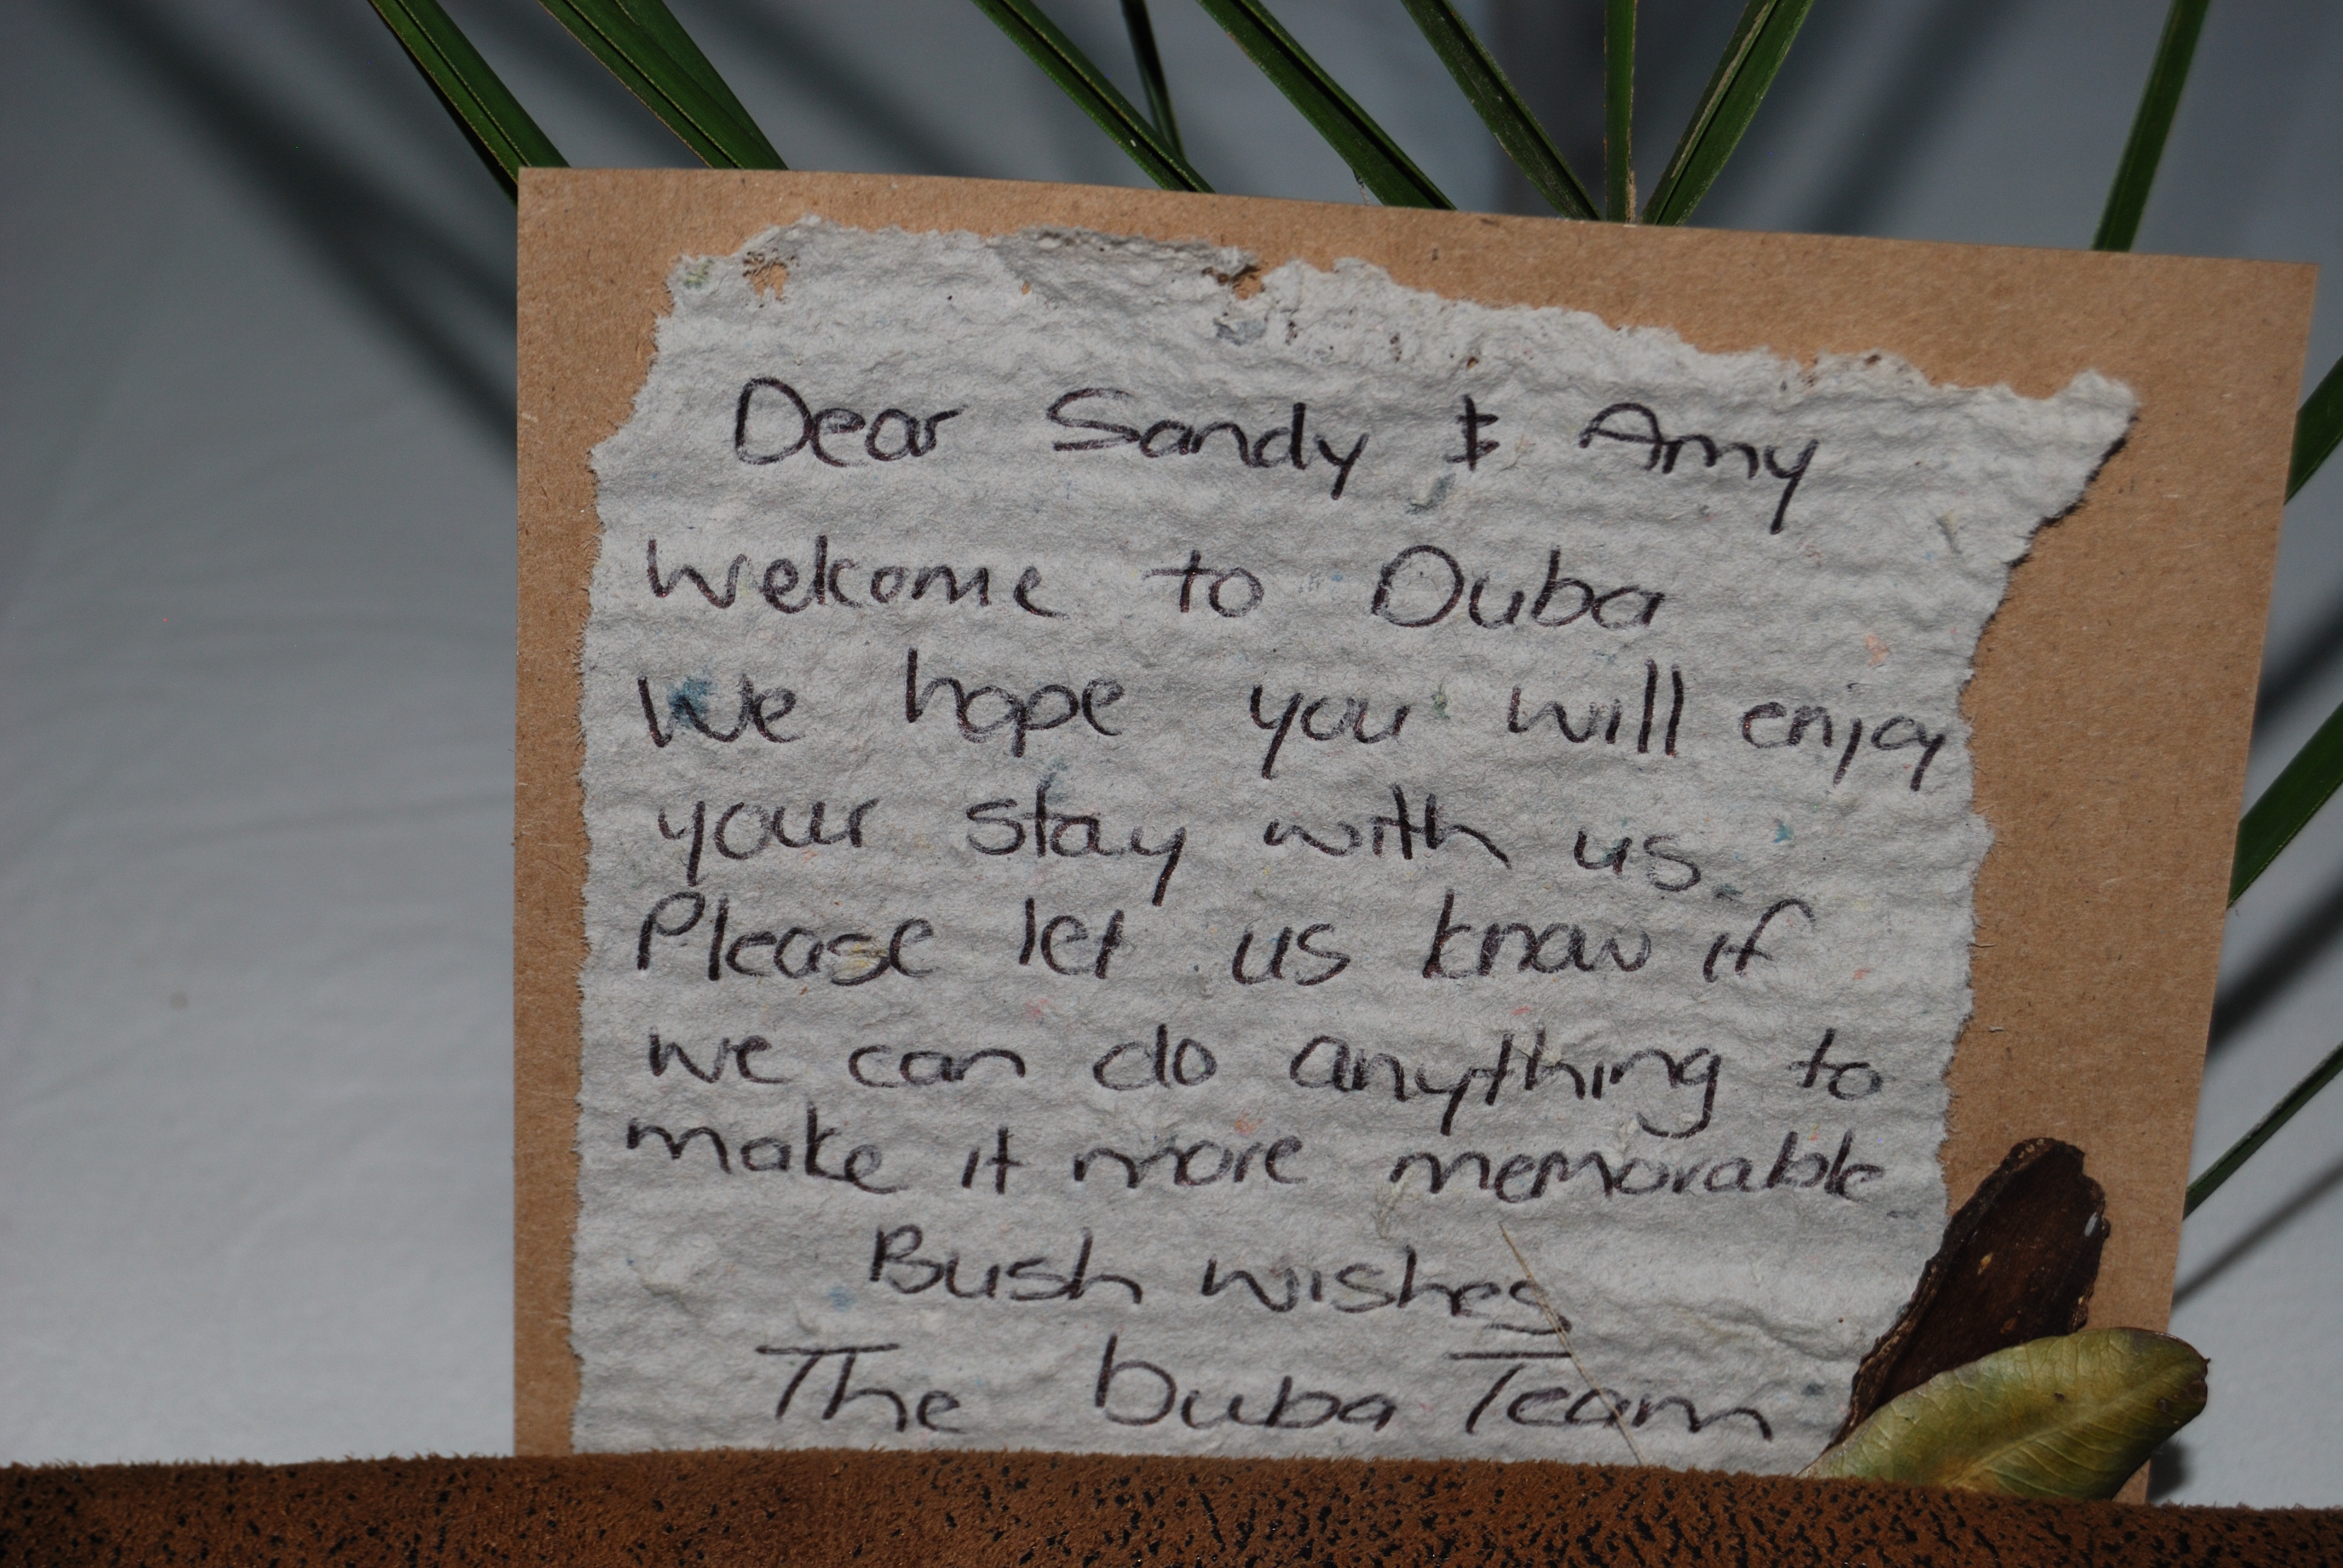 Dear Sandy & Amy
Welcome to Duba
We hope you will enjoy
your stay with us.
Please let us know if
we can do anything to
make it more memorable
Bush wishes
The Duba Team